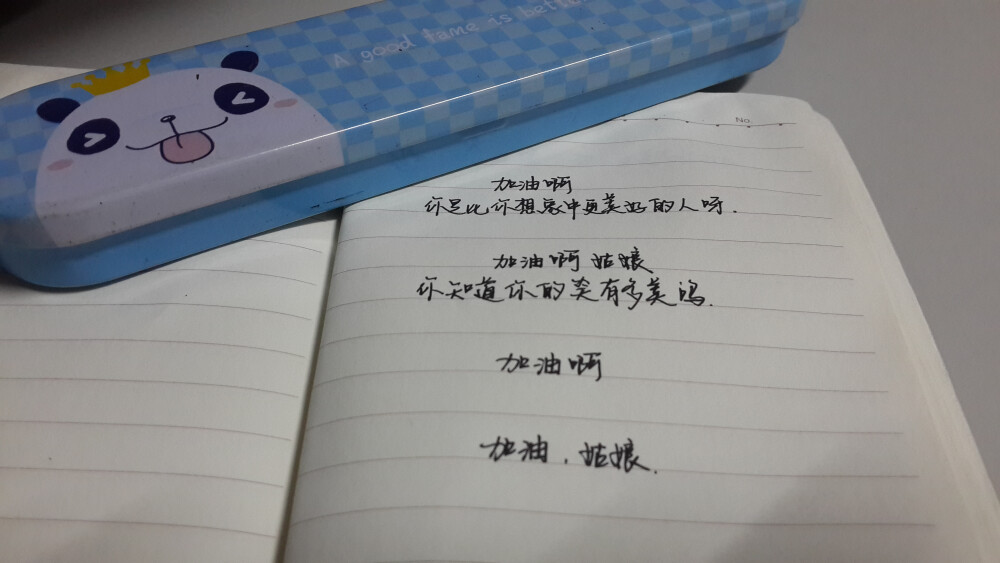 A good fame is better
No.
加油啊
你是比你想象中更美好的人呀.
加油啊 姑娘
你知道你的笑有多美吗.
加油啊
加油.姑娘.